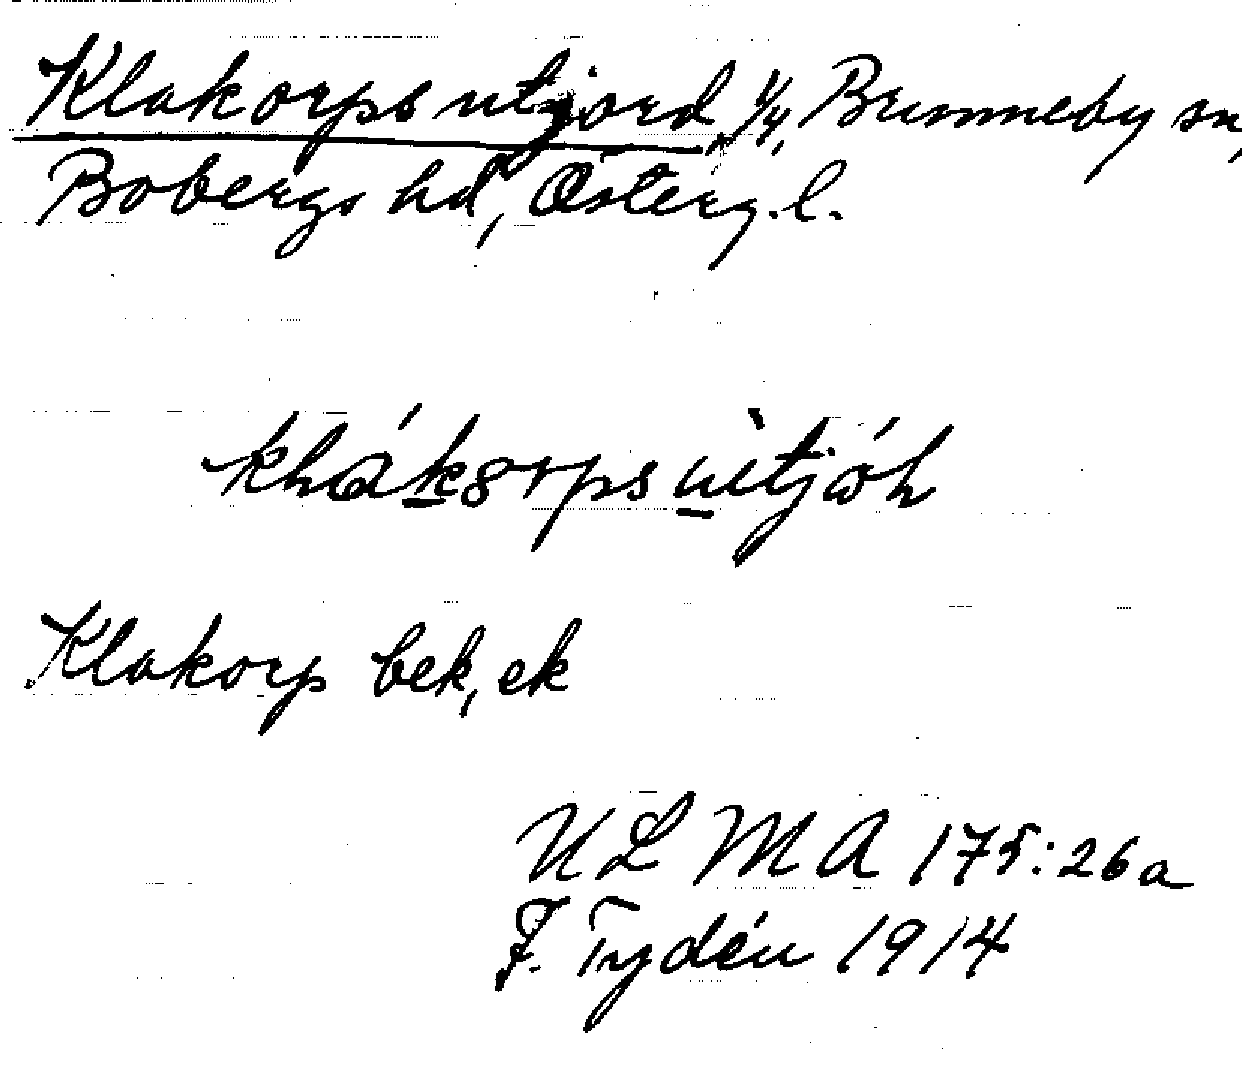 Klakorps utjord, 1/4, Brunneby sn,
Bobergs hd, Österg.l.
Klakorp bek, ek
ULMA 175:26a
F. Tydén 1914